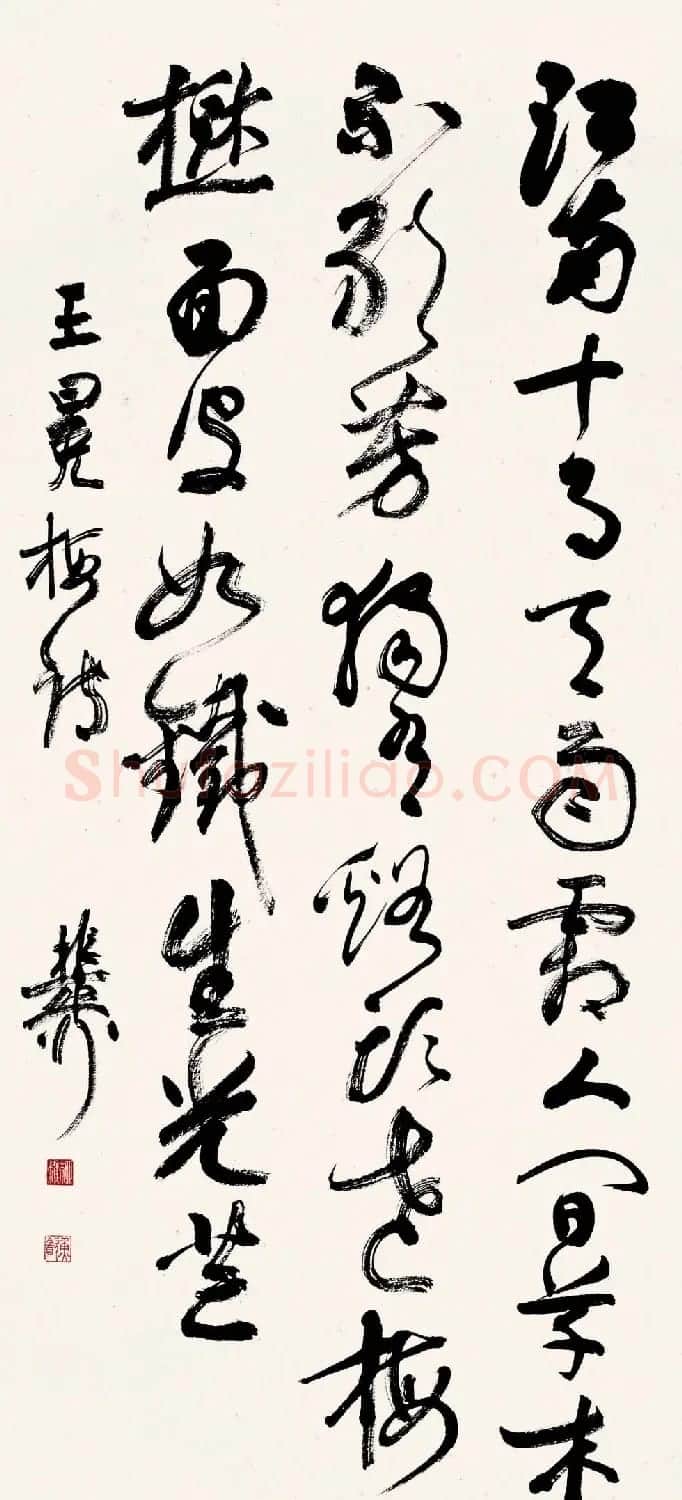 江南十月天雨霜人間草木
不敢芳獨有谿頭老梅
面皮如鐵生光芒
王冕梅詩
Shufaziliao.COM